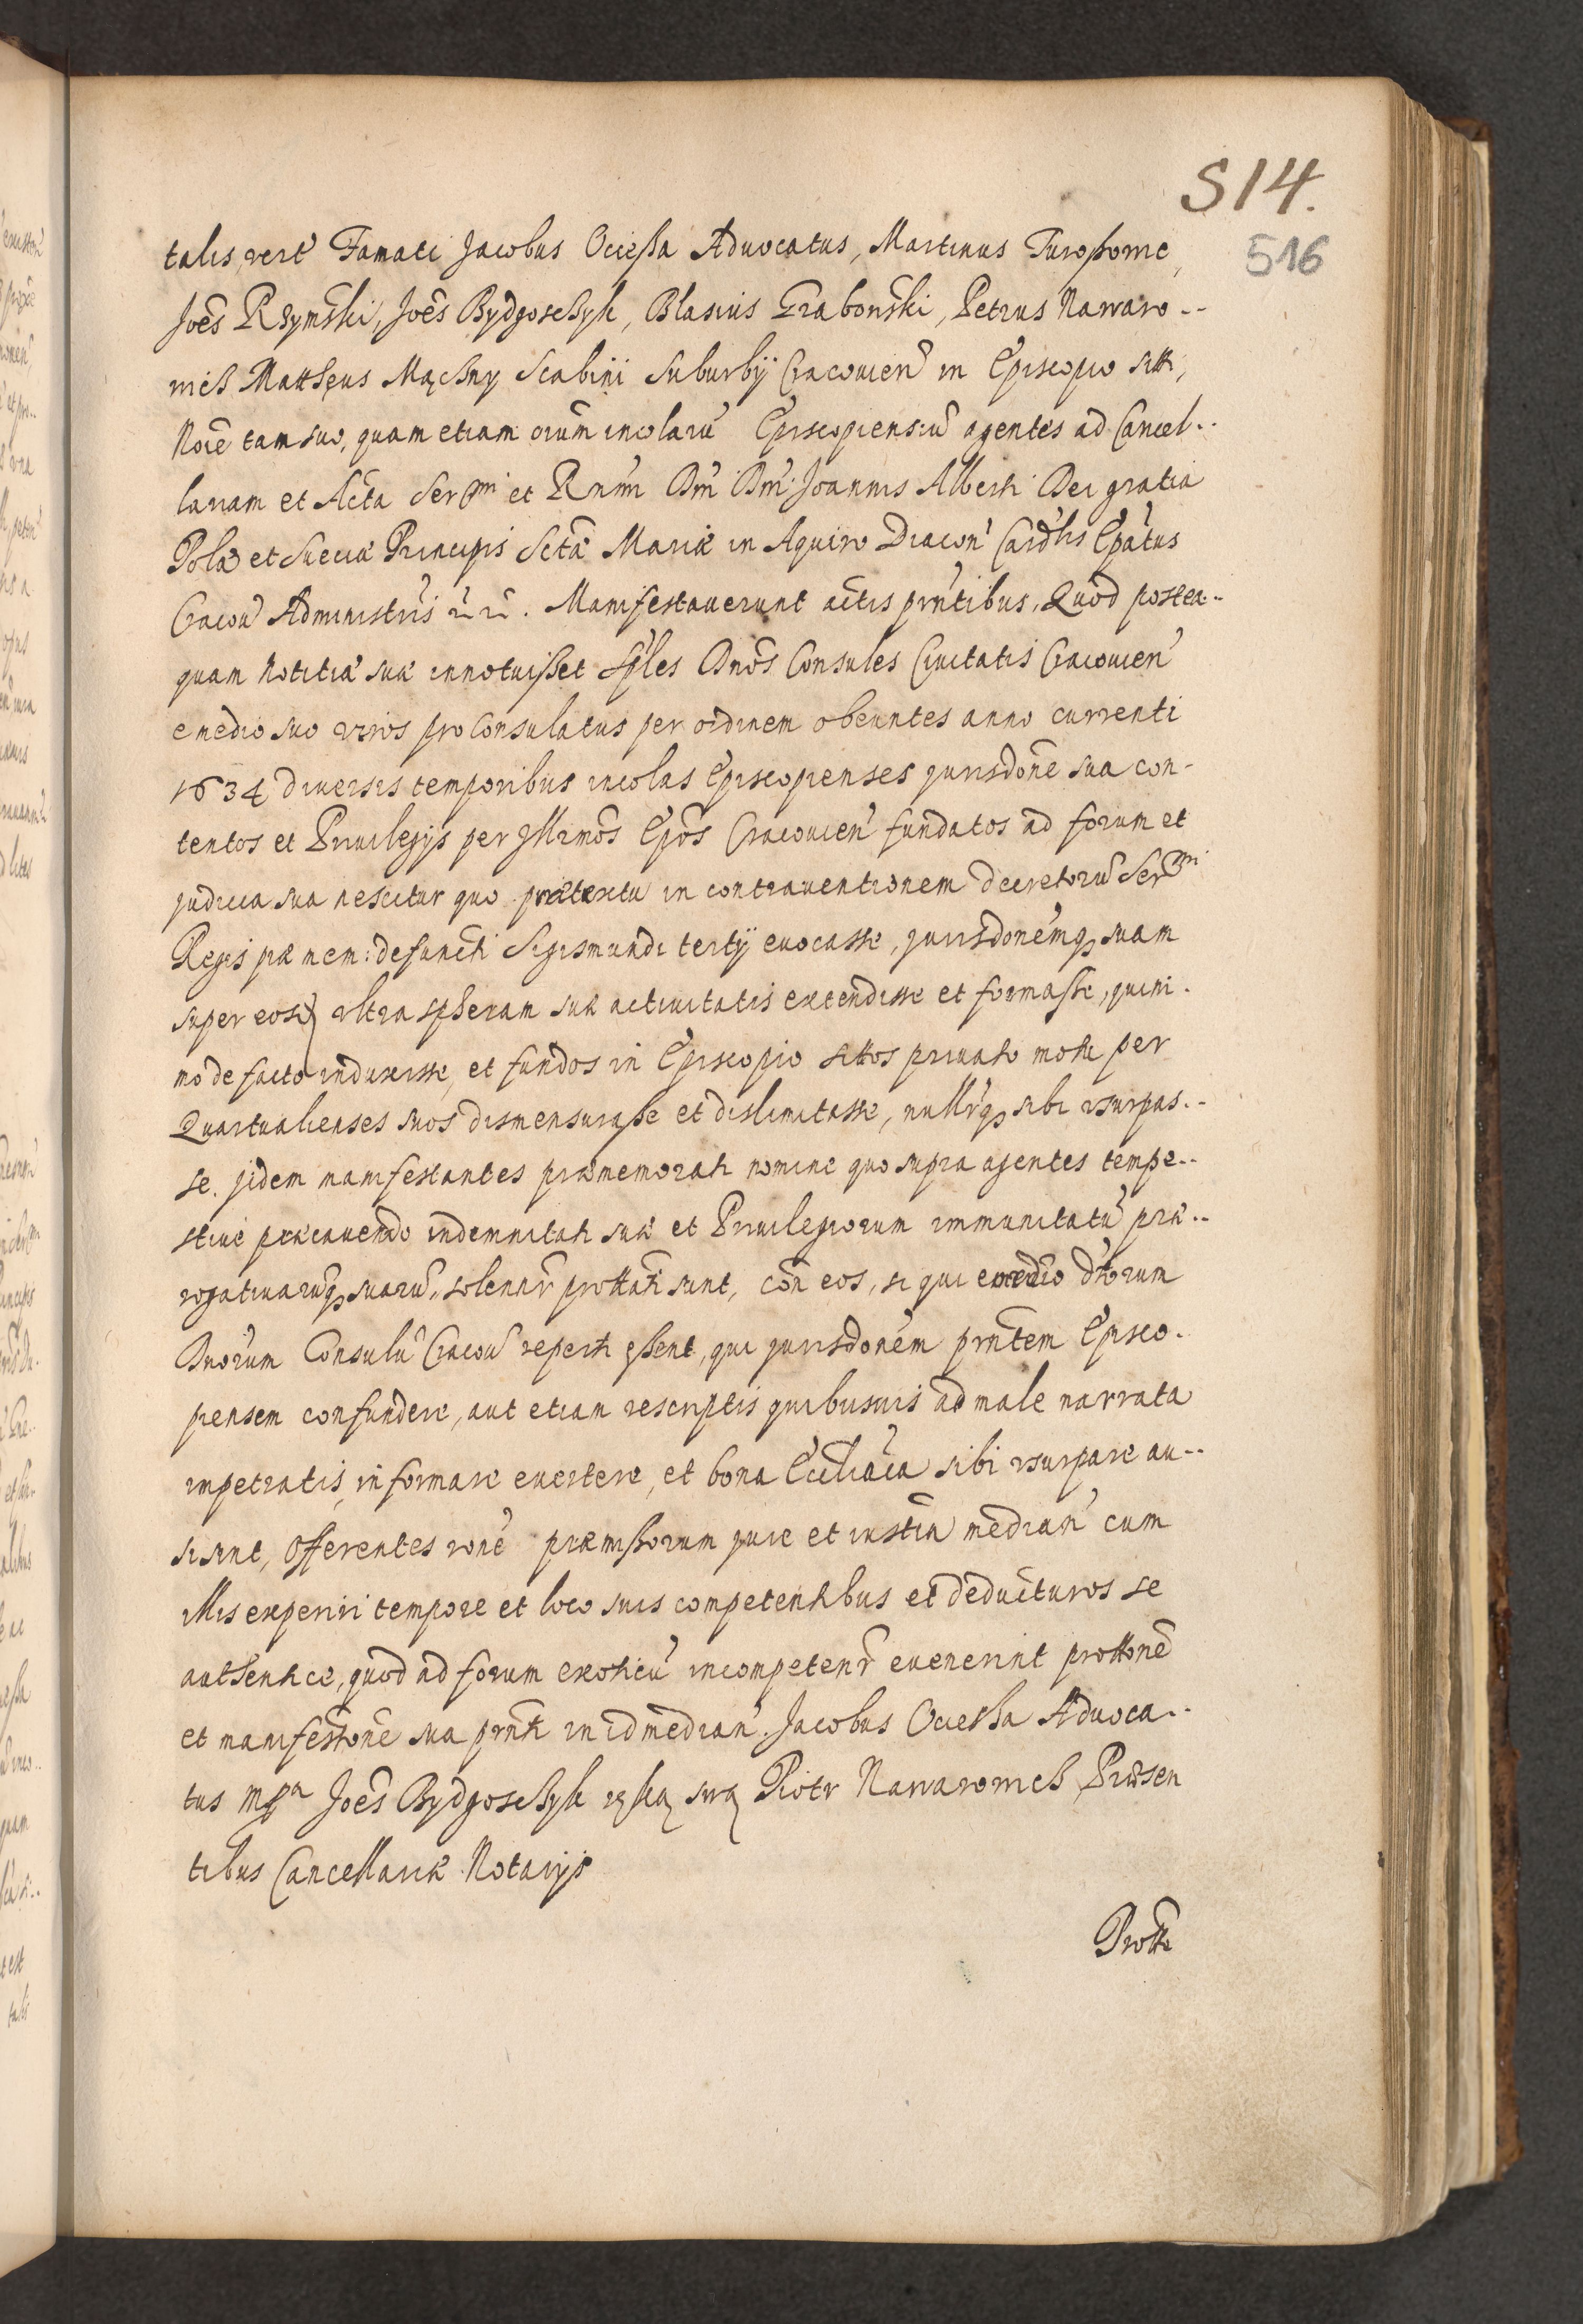 514.
516
talis, vert Famati Jacobus Ocießa Advocatus, Martinus Turoßowic,
Joēs Rzymski, Joēs Bydgosczyk, Blasius Grabowski, Petrus Nawaro--
wicz Matthęus Mączny Scabini Suburbÿ Cracouien in Episcopio siti,
Noīe tam suo, quam etiam oīum incolarū Episcopiensiū agentes ad Cancel--
lariam et Acta Serᵐⁱ et Rnmi Dni Dni Joannis Alberti Dei gratia
Polæ et Sueciæ Principis Sctæ Mariæ in Aquiro Diacon Cardlis Epatus
Cracou Administris. Manifestauerunt actis pntibus, Quod postea--
quam notitiæ suæ innotuißet Sples Dnos Consules Ciuitatis Cracouien
e medio suo viros proconsulatus per ordinem obeuntes anno currenti
1634 diuersis temporibus incolas Episcopienses jurisdone sua con-
tentos et Priuilegijs per Jllrmos Epos Cracouien fundatos ad forum et
judicia sua nescitur quo prætextu in contrauentionem decretorū Serᵐⁱ
Regis piæ mem: defuncti Sigismundi tertÿ euocasse, jurisdonemq suam
super eosq ultra spheram suæ actiuitatis extendisse et formasse, quini-
mo de facto induxisse, et fundos in Episcopio sitos priuato motu per
Quartualienses suos dismensuraße et dislimitasse, nulliq sibi vsurpas--
se. Jidem manifestantes præmemorati nomine quo supra agentes tempe--
stiue præcauendo indemnitati suæ et Priuilegiorum immunitatū præ--
rogatiuarūq suarū, solennr prottati sunt, con eos, si qui e medio dtorum
Dnorum Consulū Cracou reperti eßent, qui jurisdonem pntem Episco-
piensem confundere, aut etiam rescriptis quibusuis ad male narrata
impetratis, informare euertere, et bona Eccliaca sibi vsurpare au--
si sint, Offerentes rone præmißorum jure et iustia median cum
illis experiri tempore et loco suis competentibus et deducturos se
authentice, quod ad forum exoticū incompetenr euenerint prottone
et manifestone sua pnti in id median. Jacobus Ocießa Aduoca--
tus mpa Joēs Bydgosczyk ręką swą Piotr Nawarowicz Præsen
tibus Cancellariæ Notarijs
Protto